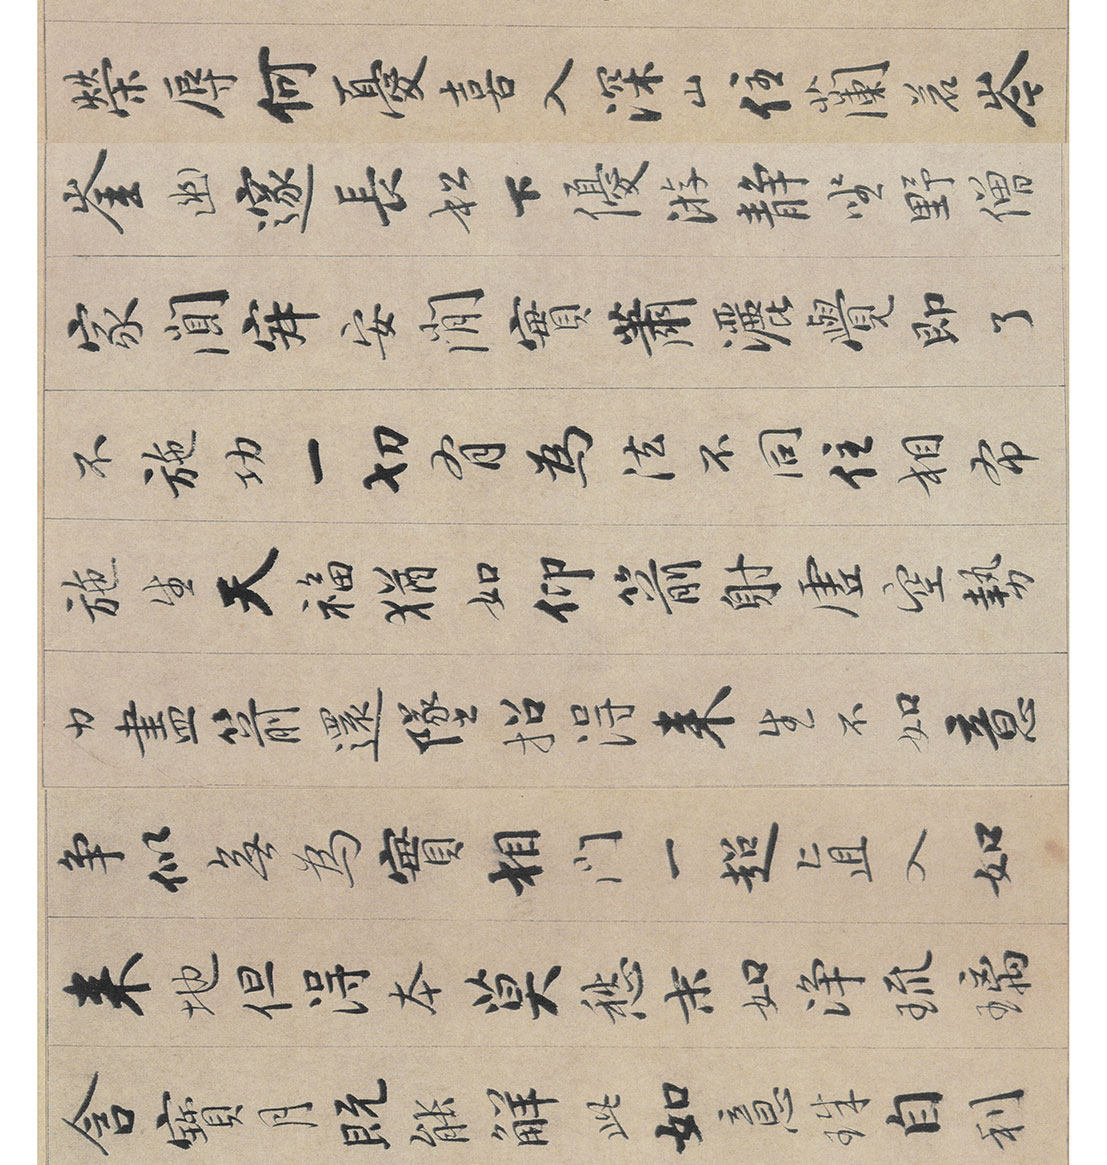 榮辱何憂喜入深山住蘭若岑
崟幽邃長松下優游静坐野僧
家闃寂安閑實蕭灑覺即了
不施功一切有為法不同住相布
施生天福猶如仰箭射虛空勢
力盡箭還墜招得來生不如意
爭似無為實相門一超直入如
來地但得本莫愁末如淨琉璃
含寶月既能解此如意珠自利